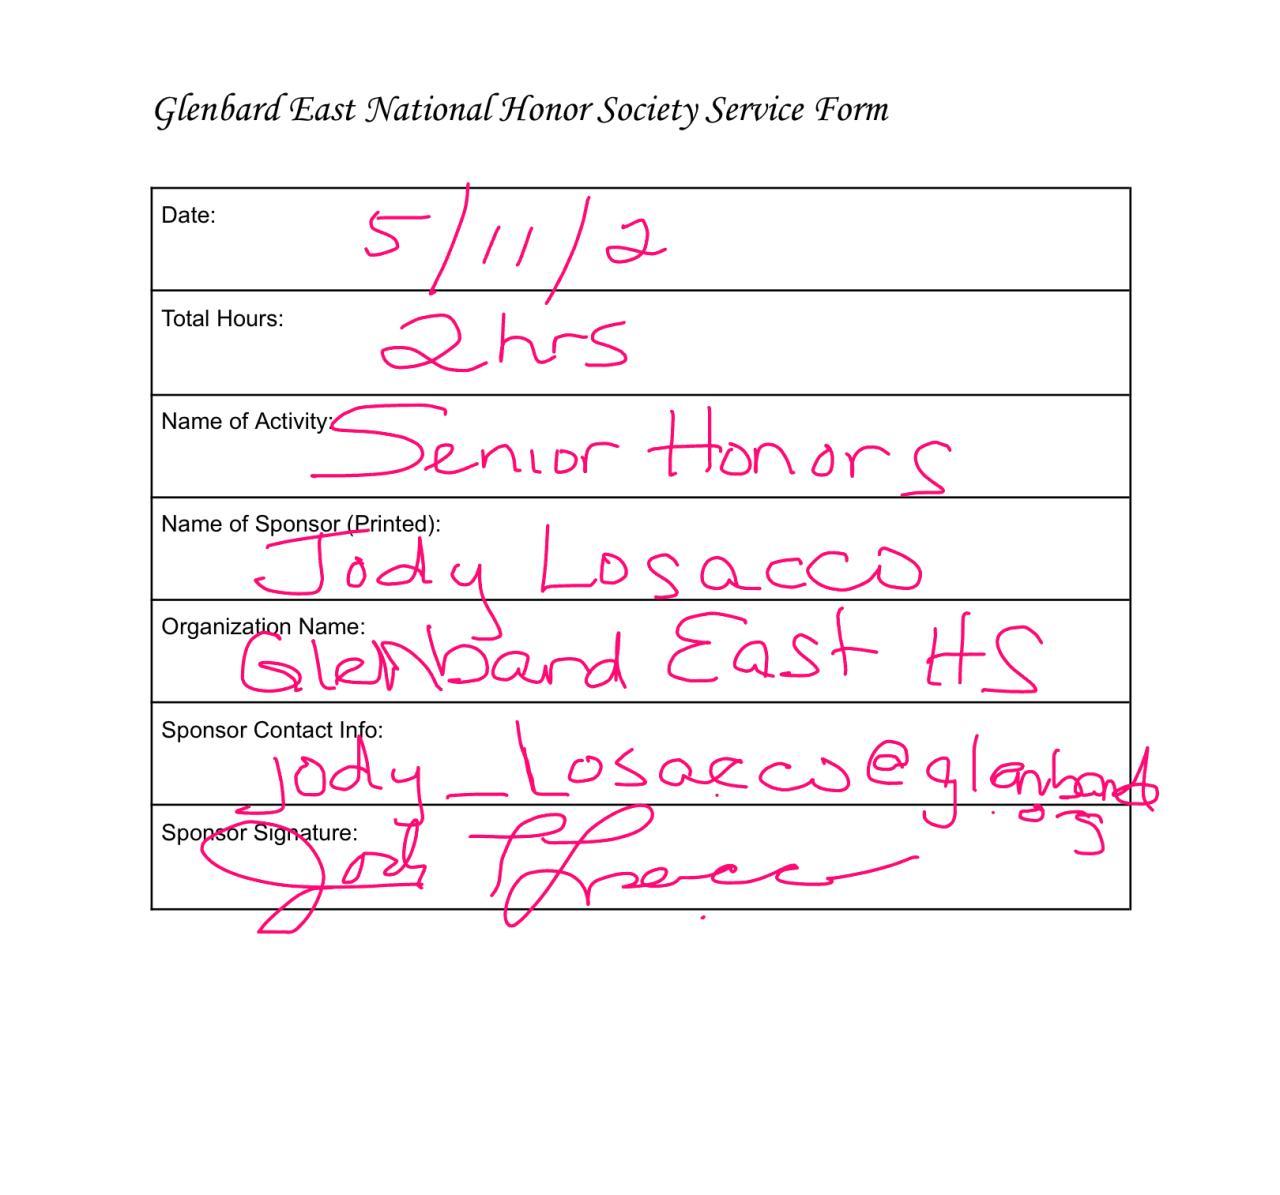 Glenbard East National Honor Society Service Form
Date: 5/11/2
Total Hours: 2hrs
Name of Activity: Senior Honors
Name of Sponsor (Printed):
Jody Losacco
Organization Name:
Glenbard East HS
Sponsor Contact Info:
Jody_Losacco@glenbard
.org
Sponsor Signature:
Jody Losacco